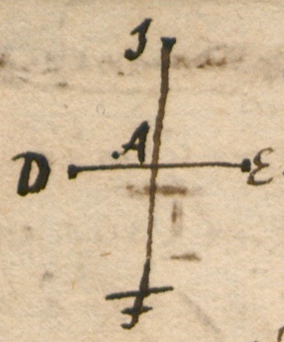 J
.A
D E
F